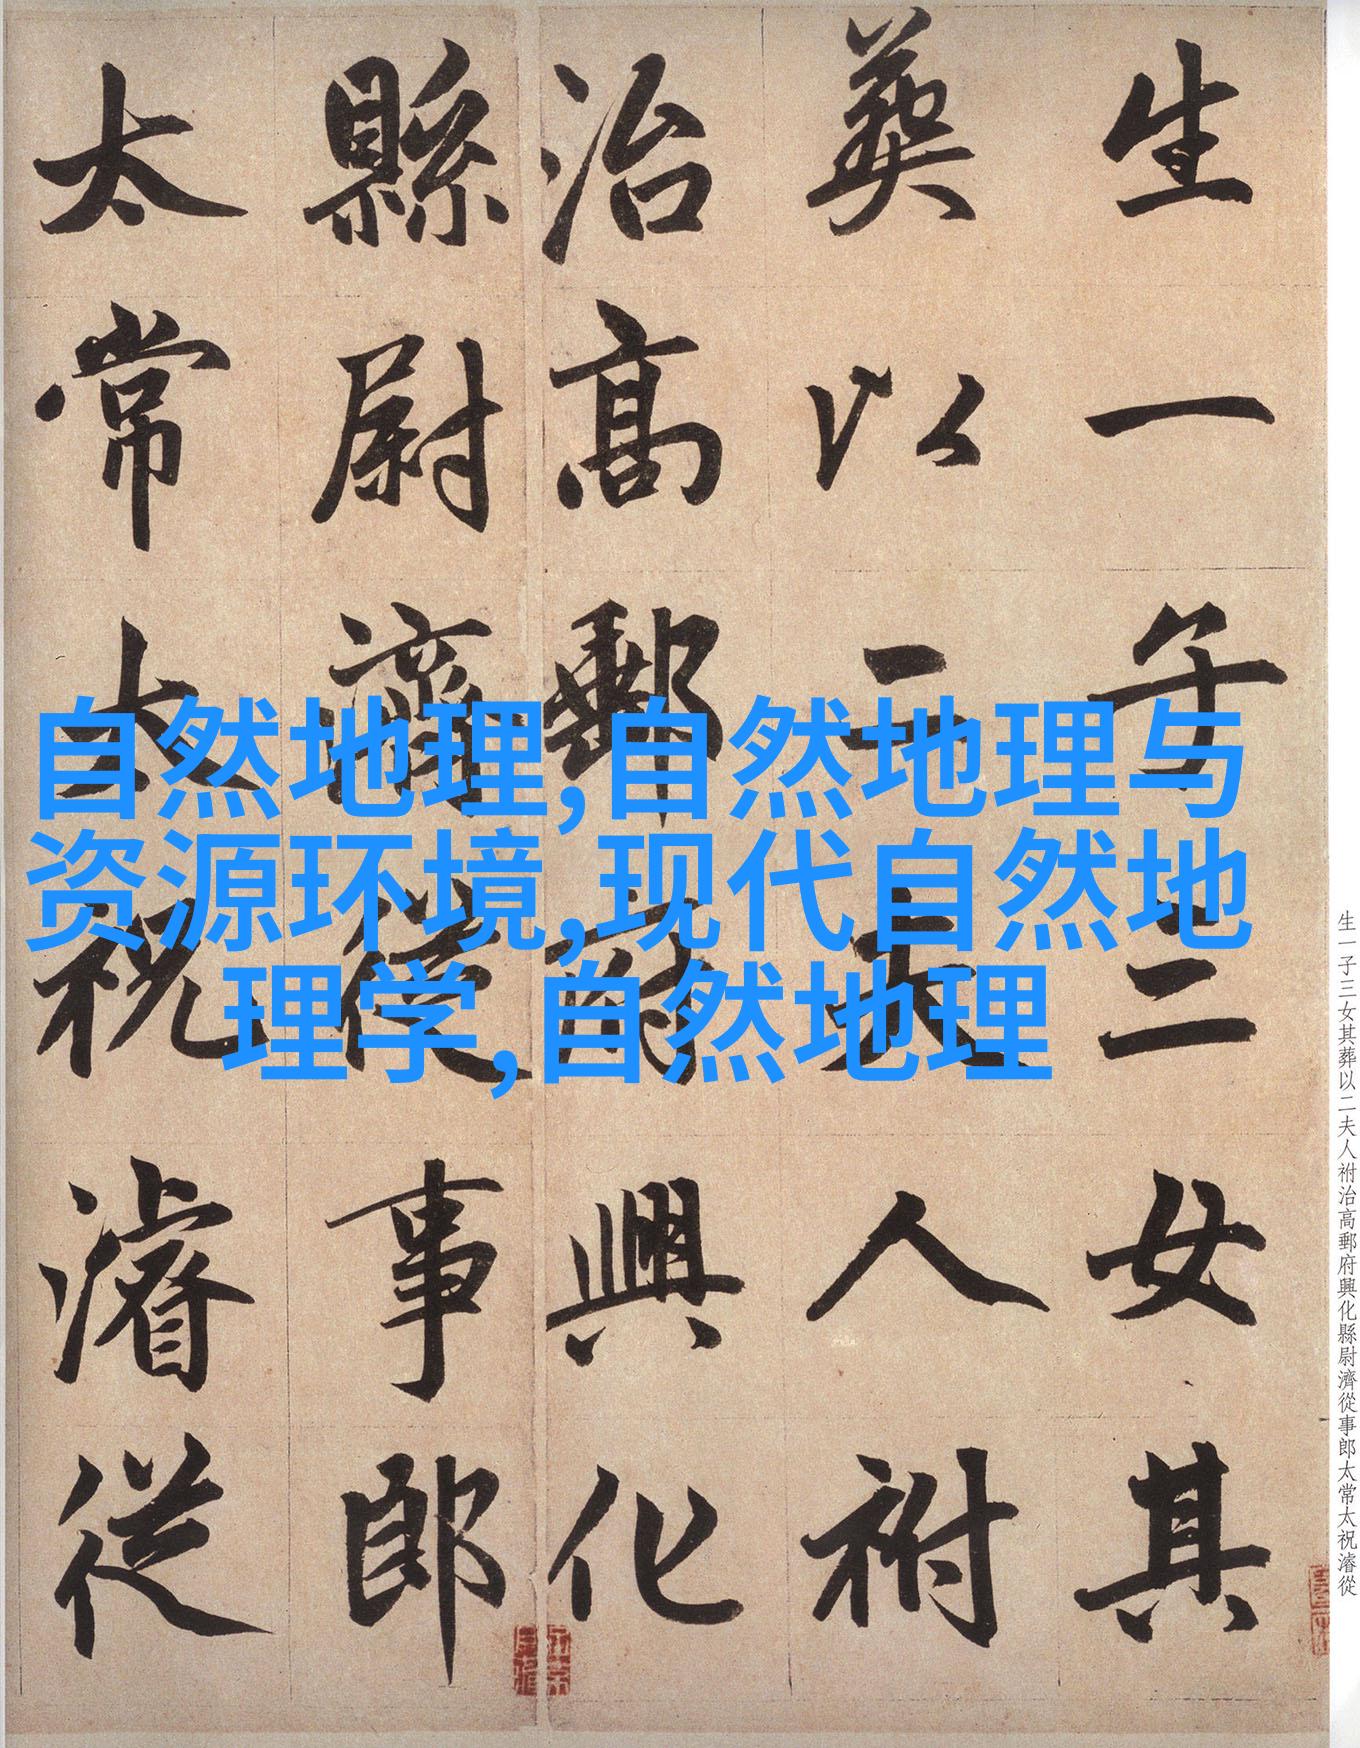 生一子三女其
葬以二夫人祔
治高郵府興化
縣尉濟從事郎
太常太祝濬從
自然地理,自然地理与
资源环境,现代自然地
理学,自然地理
生一子三女其葬以二夫人祔治高郵府興化縣尉濟從事郎太常太祝濬從